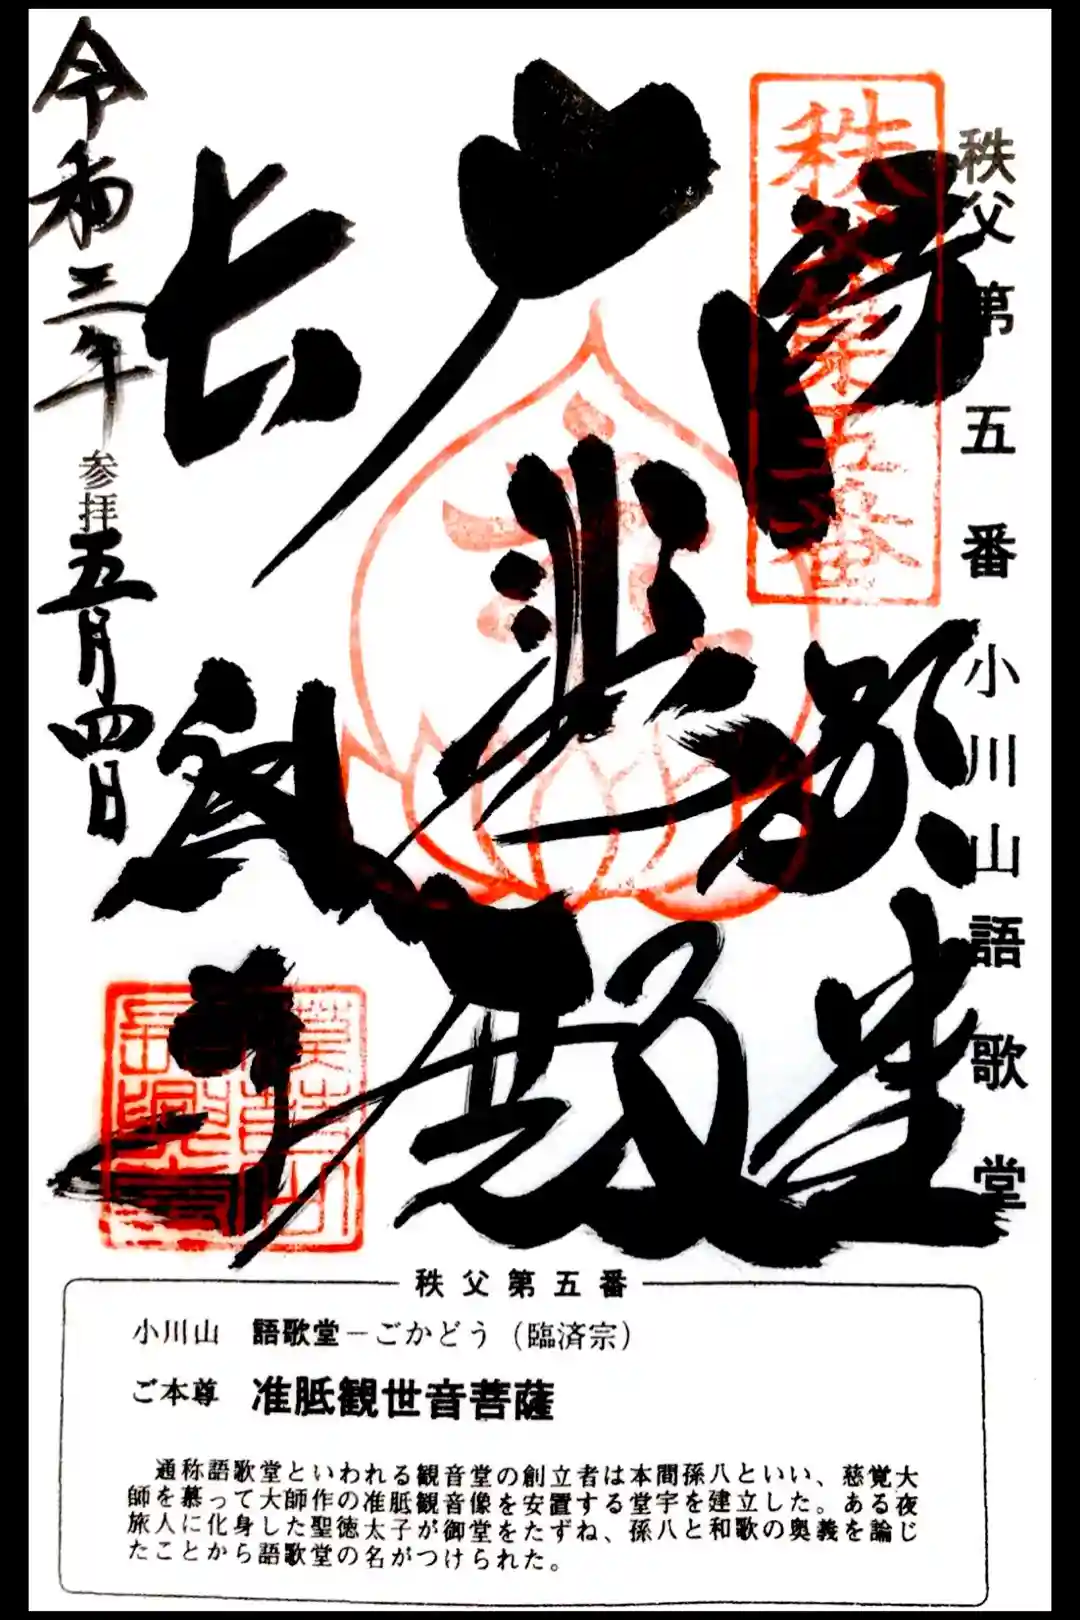 秩父第五番 小川山語歌堂
秩父第五番
大悲殿
長
令和三年
参拝
五月四日
秩父第五番
小川山 語歌堂－ごかどう（臨済宗）
ご本尊 准胝観世音菩薩
通称語歌堂といわれる観音堂の創立者は本間孫八といい、慈覚大
師を慕って大師作の准胝観音像を安置する堂宇を建立した。ある夜
旅人に化身した聖徳太子が御堂をたずね、孫八と和歌の奥義を論じ
たことから語歌堂の名がつけられた。